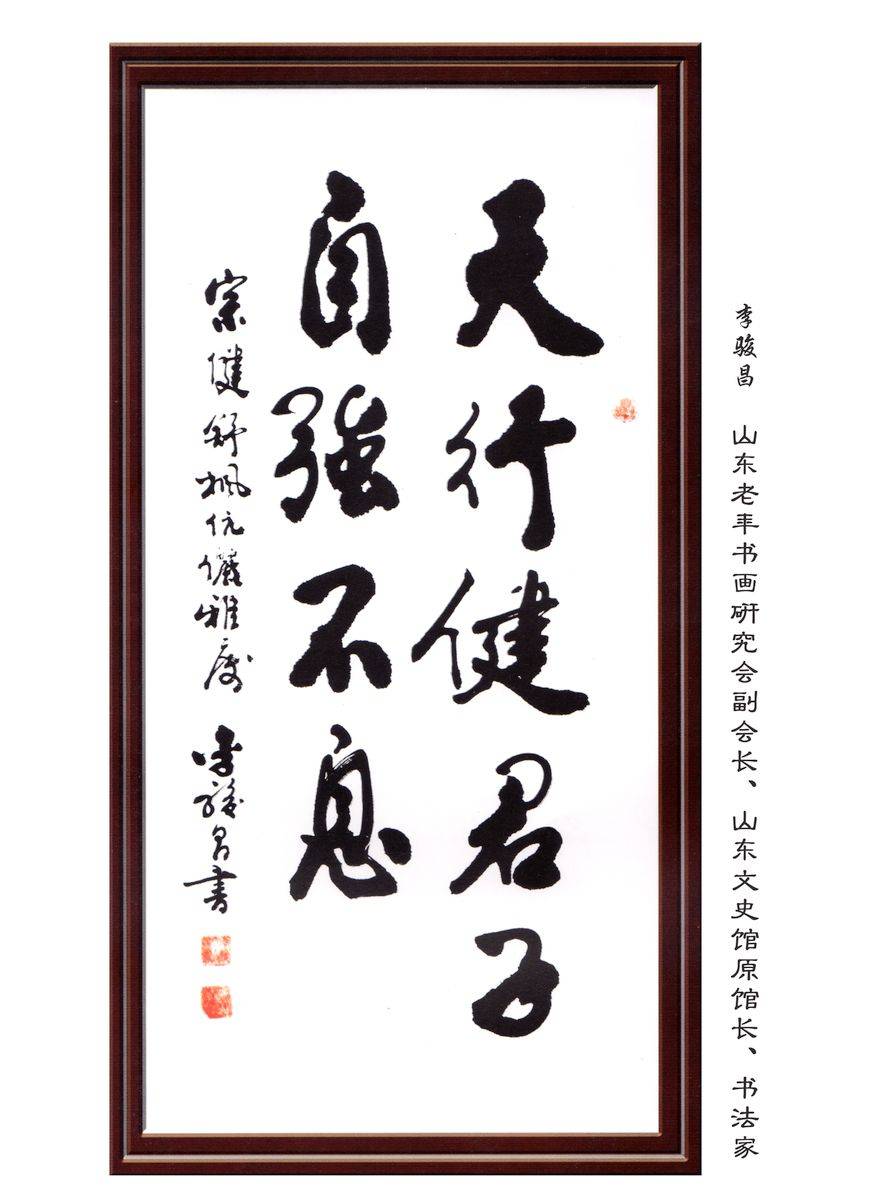 天行健君子
自强不息
宗健舒枫伉俪雅嘱 李骏昌书
李骏昌 山东老年书画研究会副会长、山东文史馆原馆长、书法家